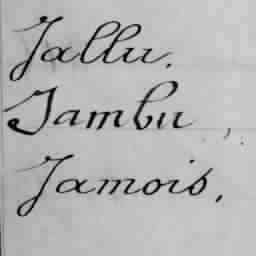 Jallu.
Jambu,
Jamois,